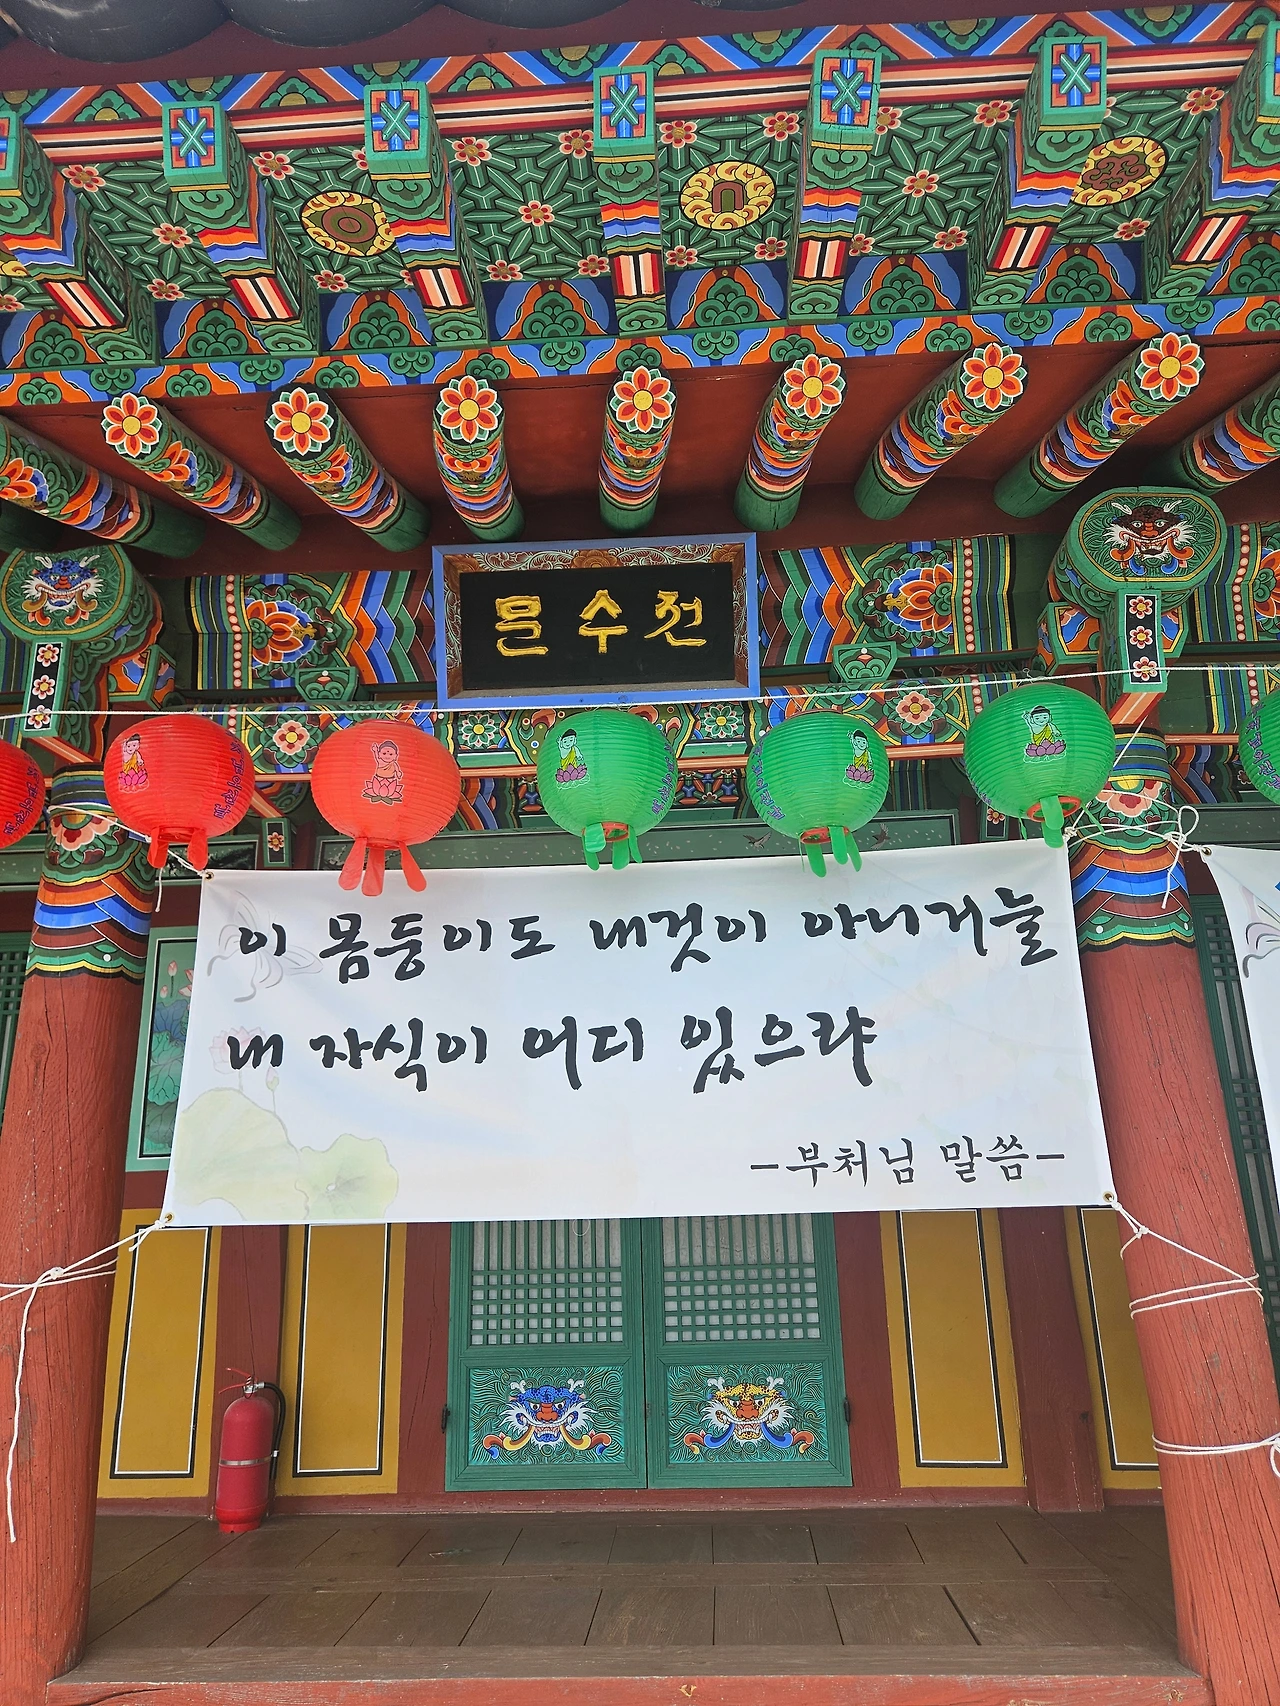 문수전
이 몸둥이도 내것이 아니거늘
내 자식이 어디 있으랴
-부처님 말씀-